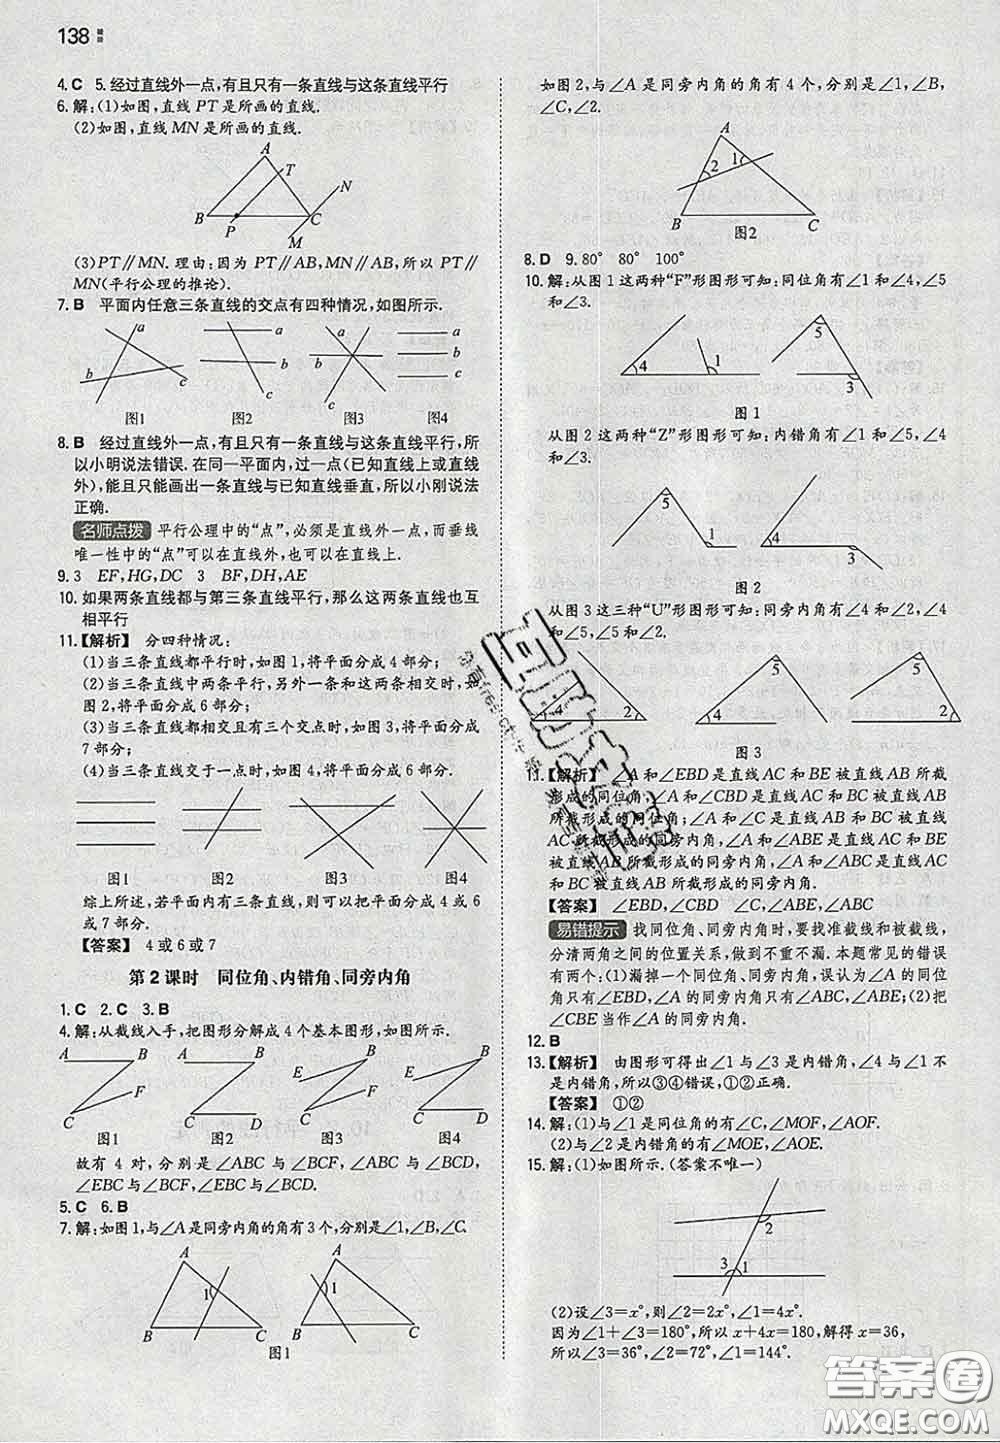 138
4.C 5.经过直线外一点,有且只有一条直线与这条直线平行
6.解:(1)如图,直线PT是所画的直线.
(2)如图,直线MN是所画的直线.
A
T
N
B
P
C
M
(3)PT∥MN.理由:因为PT∥AB,MN∥AB,所以PT∥
MN(平行公理的推论).
7.B 平面内任意三条直线的交点有四种情况,如图所示.
a
b
c
图1
a
b
c
图2
a
b
c
图3
a
b
c
图4
8.B 经过直线外一点,有且只有一条直线与这条直线平行,所
以小明说法错误.在同一平面内,过一点(已知直线上或直线
外),能且只能画出一条直线与已知直线垂直,所以小刚说法
正确.
名师点拨 平行公理中的“点”,必须是直线外一点,而垂线
唯一性中的“点”可以在直线外,也可以在直线上.
9.3 EF,HG,DC 3 BF,DH,AE
10.如果两条直线都与第三条直线平行,那么这两条直线也互
相平行
11.【解析】 分四种情况:
(1)当三条直线都平行时,如图1,将平面分成4部分;
(2)当三条直线中两条平行,另外一条和这两条相交时,如
图2,将平面分成6部分;
(3)当三条直线都相交且有三个交点时,如图3,将平面分成
7部分;
(4)当三条直线交于一点时,如图4,将平面分成6部分.
图1
图2
图3
图4
综上所述,若平面内有三条直线,则可以把平面分成4或6
或7部分.
【答案】 4或6或7
第2课时 同位角、内错角、同旁内角
1.C 2.C 3.B
4.解:从截线入手,把图形分解成4个基本图形,如图所示.
A B F C 图1
A B C D 图2
E B F C 图3
E B C D 图4
故有4对,分别是∠ABC与∠BCF,∠ABC与∠BCD,
∠EBC与∠BCF,∠EBC与∠BCD.
5.C 6.B
7.解:如图1,与∠A是同旁内角的角有3个,分别是∠1,∠B,∠C.
A
1
B
C
A
1
B
C
图1
如图2,与∠A是同旁内角的角有4个,分别是∠1,∠B,
∠C,∠2.
A
2
1
B
C
图2
8.D 9.80° 80° 100°
10.解:从图1这两种“F”形图形可知:同位角有∠1和∠4,∠5
和∠3.
4
1
5
3
图1
从图2这两种“Z”形图形可知:内错角有∠1和∠5,∠4
和∠3.
5
1
4
3
图2
从图3这三种“U”形图形可知:同旁内角有∠4和∠2,∠4
和∠5,∠5和∠2.
4
2
4
5
5
2
图3
11.【解析】 ∠A和∠EBD是直线AC和BE被直线AB所截
形成的同位角,∠A和∠CBD是直线AC和BC被直线AB
所截形成的同位角;∠A和∠C是直线AB和BC被直线
AC所截形成的同旁内角,∠A和∠ABE是直线AC和BE
被直线AB所截形成的同旁内角,∠A和∠ABC是直线AC
和BC被直线AB所截形成的同旁内角.
【答案】 ∠EBD,∠CBD ∠C,∠ABE,∠ABC
易错提示 找同位角、同旁内角时,要找准截线和被截线,
分清两角之间的位置关系,做到不重不漏.本题常见的错误
有两个:(1)漏掉一个同位角、同旁内角,认为∠A的同位
角只有∠EBD,同旁内角只有∠C和∠ABE;(2)把
∠CBE当作∠A的同旁内角.
12.B
13.【解析】 由图形可得出∠1与∠3是内错角,∠4与∠1不
是内错角,所以③④错误,①②正确.
【答案】 ①②
14.解:(1)与∠1是同位角的有∠C,∠MOF,∠AOF.
(2)与∠2是内错角的有∠MOE,∠AOE.
15.解:(1)如图所示.(答案不唯一)
2
3
1
(2)设∠3=x°,则∠2=2x°,∠1=4x°.
因为∠1+∠3=180°,所以x+4x=180,解得x=36,
所以∠3=36°,∠2=72°,∠1=144°.
答案圈
MXQE.COM